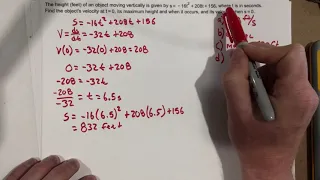 The height (feet) of an object moving vertically is given by s = -16t² + 208t + 156, where t is in seconds.
Find the object's velocity at t = 0, its maximum height and when it occurs, and its velocity when s = 0.
S = -16t² + 208t + 156
V = ds/dt = -32t + 208
V(0) = -32(0) + 208 = 208
0 = -32t + 208
-208 = -32t
-208/-32 = t = 6.5s
S = -16(6.5)² + 208(6.5) + 156
= 832 feet
ft/s
b)
c)
d)